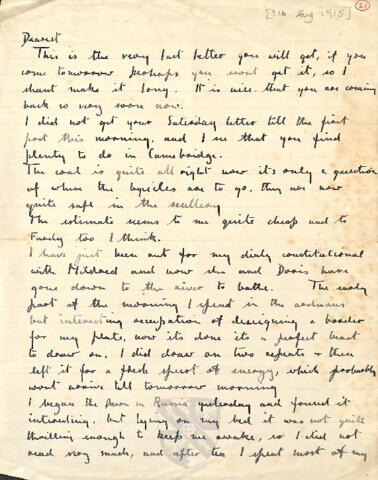 [?16 Aug 1915]
(21)
Dearest
This is the very last letter you will get, if you
come tomorrow perhaps you wont get it, so I
shant make it long. It is nice that you are coming
back so very soon now.
I did not get your Saturday letter till the first
post this morning, and I see that you find
plenty to do in Cambridge.
The coal is quite all right now it's only a question
of where the bycicles are to go, they are now
quite safe in the scullery
The estimate seems to me quite cheap and to
too I think.
I have just been out for my daily constitutional
with Mildred and now she and Doris have
gone down to the river to bathe. The early
part of the morning I spent in the arduous
but interesting occupation of designing a border
for my plate, now its done its a perfect beast
to draw on. I did draw on two repeats & then
left it for a fresh spurt of energy, which probably
wont arrive till tomorrow morning
I began the Dawn in Russia yesterday and found it
interesting, but lying on my bed it was not quite
thrilling enough to keep me awake, so I did not
read very much, and after tea I spent most of my